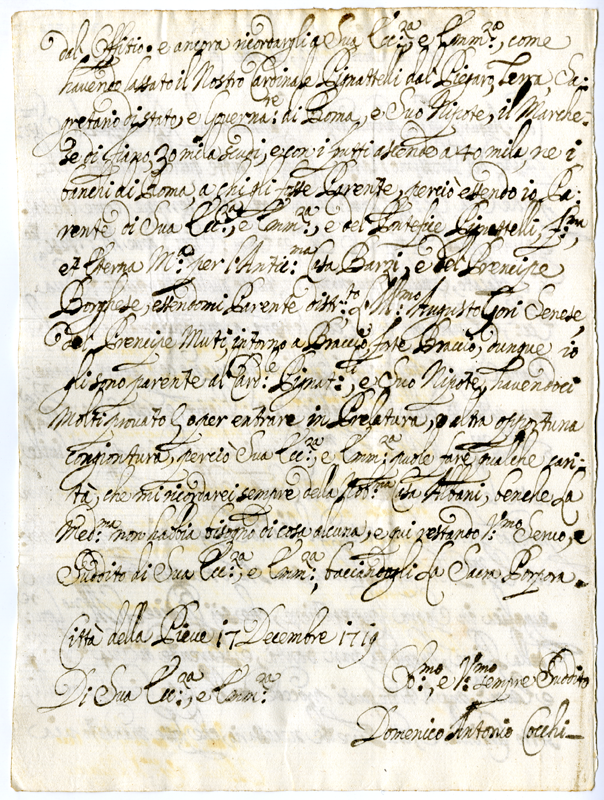 dal Offitio. e ancora ricordargli a Sua Ecc.za e Emm.za, come
havendo lassato il Nostro Cardinale Pignattelli dal Terra, Se-
gretario di stato, e Governa.re di Roma, e Suo Nipote, il Marche-
se di Piano, 30 mila scudi, e con i frutti ascende a 40 mila ne i
banchi di Roma, a chi gli fosse Parente, perciò essendo io Pa-
rente di Sua Ecc.za, e Emm.za, e del Pontefice Pignattelli,
et Eterna M.a per l'Antic.ma Casa Barzi, e del Prencipe
Borghese, essendomi Parente Augusto Gori Senese,
del Prencipe Muti, intorno a Braccio forte Braccio, dunque io
gli sono parente al Card.e Pignat.li, e Suo Nipote, havendoci
molti provato per entrare in Prelatura, o altra opportuna
congiontura, perciò Sua Ecc.za, e Emm.za puole fare qualche cari-
tà, che mi ricordarei sempre della Nob.ma Casa Albani, benche La
Med.ma non habbia bisogno di cosa alcuna, e qui restando Servo, e
Suddito di Sua Ecc.za, e Emm.za, bacciandogli La Sacra Porpora.
Città della Pieve 17 Decembre 1719
Di Sua Ecc.za, e Emm.za
sempre Suddito
Domenico Antonio Cocchi